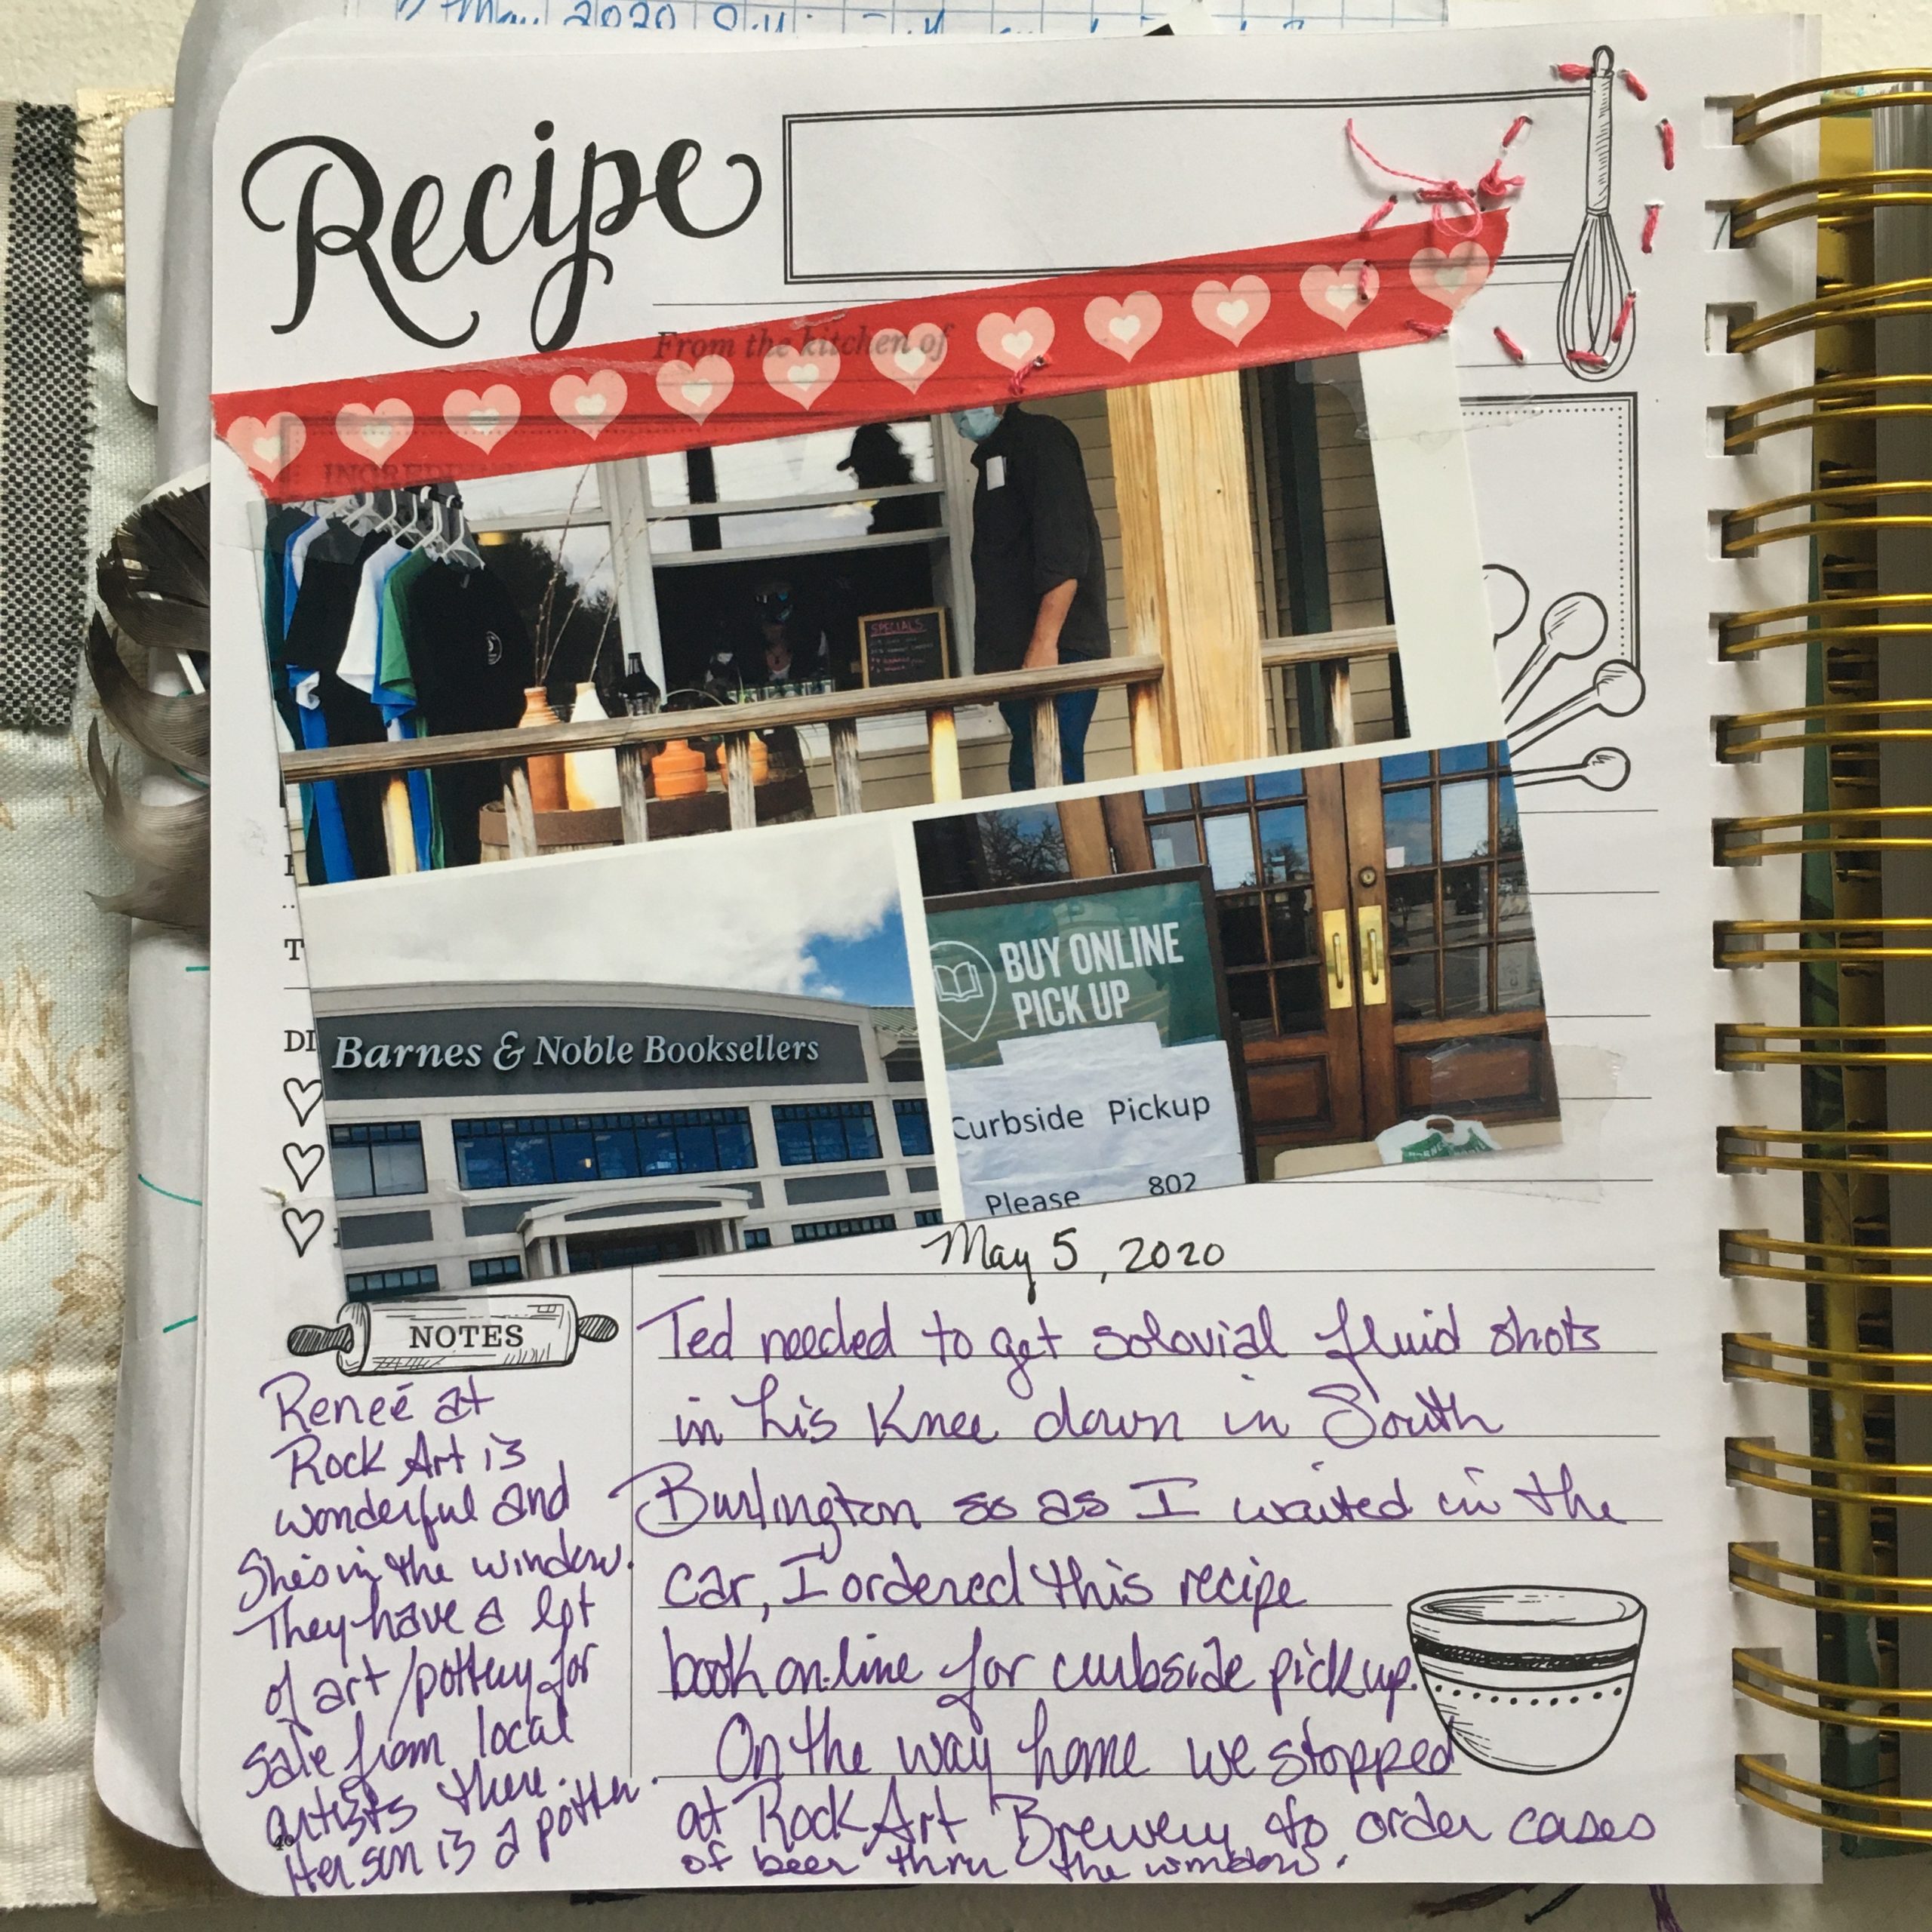 7 May 2020
Recipe
From the kitchen of
INGREDIENTS
SPECIALS
Barnes & Noble Booksellers
BUY ONLINE
PICK UP
Curbside Pickup
Please 802
T
DI
May 5, 2020
Ted needed to get solovial fluid shots
in his Knee down in South
Burlington so as I waited in the
car, I ordered this recipe
book on-line for curbside pickup.
On the way home we stopped
at Rock Art Brewery to order cases
of beer thru the window.
NOTES
Reneé at
Rock Art is
wonderful and
She's in the window.
They have a lot
of art/pottery for
sale from local
artists there.
Her son is a potter.
46